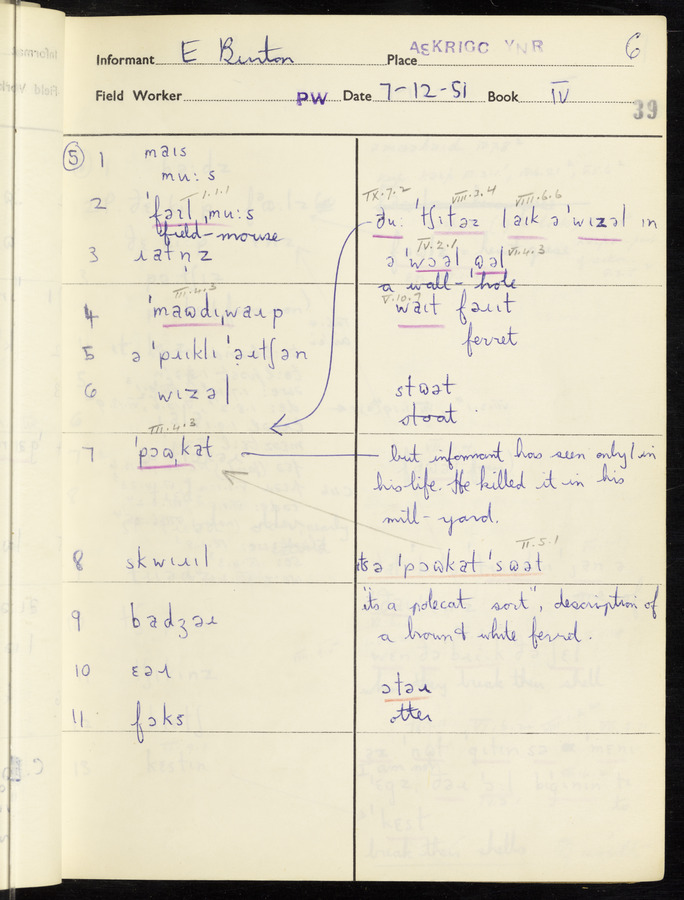 ASKRIGG YNR
6
Informant E Burton Place
Field Worker PW Date 7-12-51 Book IV
39
⑤ 1 maɪs
mu:s
IX.7.2 VIII.3.4 VIII.6.6
I.1.1
2 ˈfəɪlˌmu:s
field-mouse
ðu: ˈtʃɪtəɹ laɪk ə ˈwɪzəl ɪn
IV.2.1 VI.4.3
3 ɹatnz
ə ˈwɔəl
a wall-hole
III.4.3 V.10.7
4
waɪt fəɹɪt
ferret
5 ə ˈpɹɪklɪ
6 wɪzəl
stɷət
stoat
III.4.3
7 ˈpɔɷkat
but informant has seen only 1 in
his life. He killed it in his
mill-yard.
II.5.1
8 skwɪɹɪl
ɪts ə ˈpɔɷkat ˈsɷət
"its a polecat sort", description of
9 badʒəɹ
a brown & white ferret.
10 ɛəɹ
ɔtəɹ
11 fɔks
otter